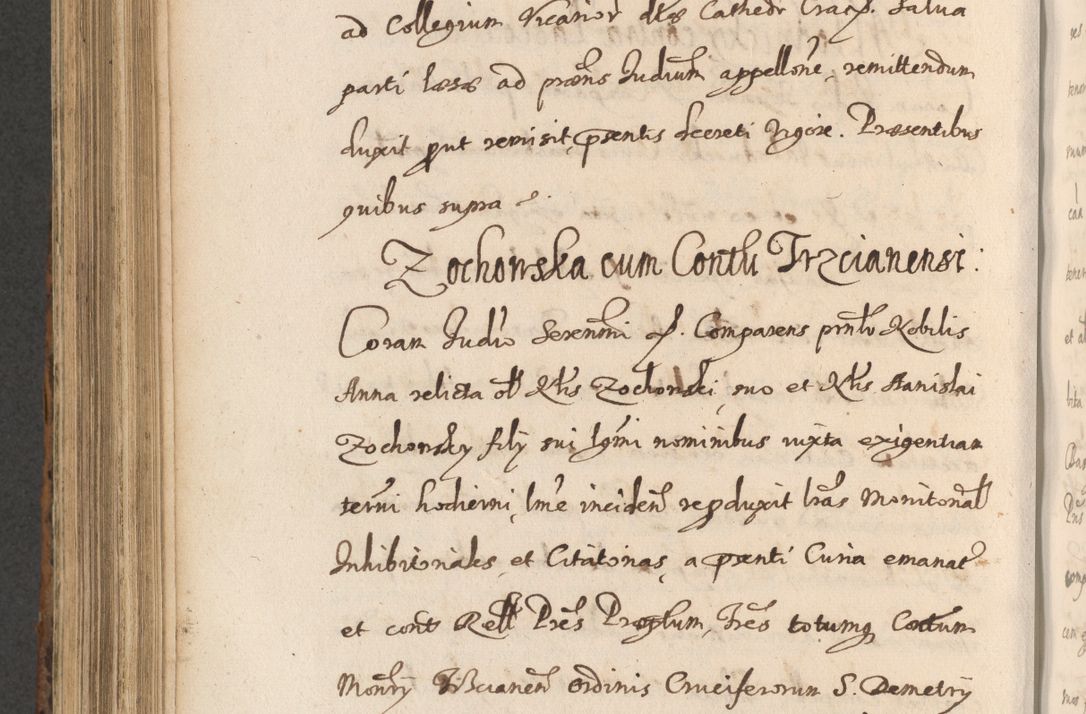 ad Collegium Vicarior dtæ Cathedr Crac̃. Salva
parti læsæ ad præns Iudium appellone, remittendum
duxit prut remisit, psentis decreti vigore. Præsentibus
quibus supra
Zochowska cum Contu Trzcianensi.
Coram Iudio Serenmi Comparens prnlr Nobilis
Anna relicta ol Nlis Zochowski, suo et Nlis Stanislai
Zochowsky filij sui lgmi nominibus iuxta exigentiam
termi hodierni, lme inciden reproduxit lras Monitorial
Inhibitoriales, et Citatorias, a psenti Curia emanat
et cont Rell Pres Præplum, Fres totumq Contum
Monrij Trzcianen ordinis Cruciferorum S. Demetrij